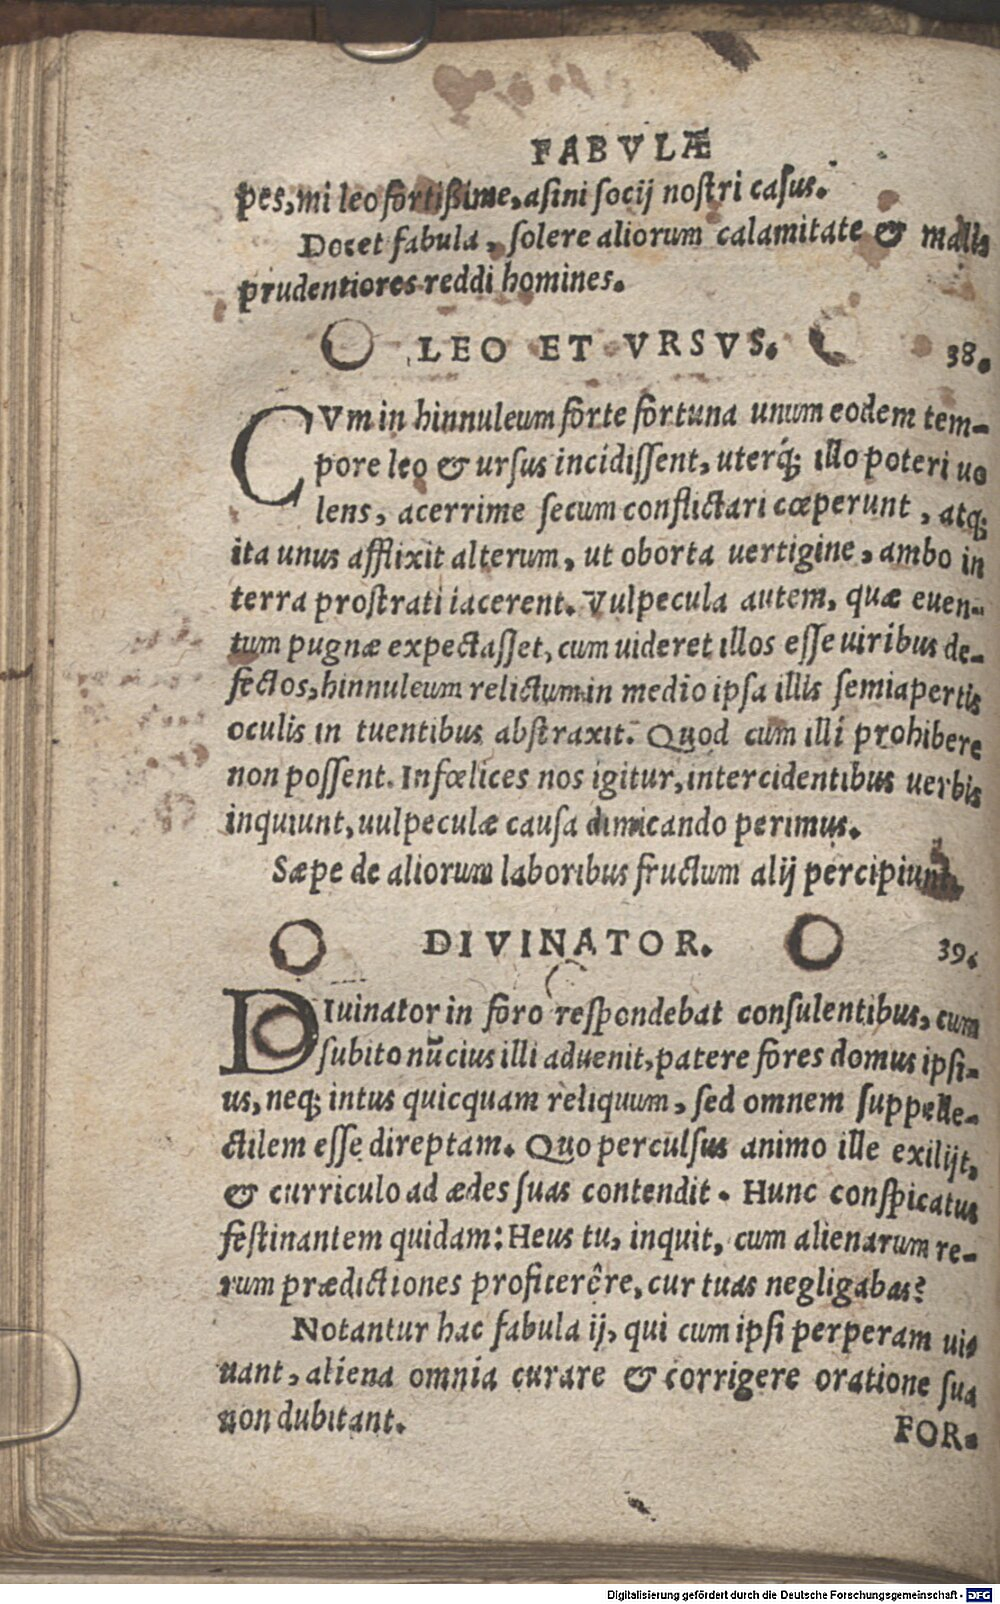 FABVLÆ
pes, mi leo fortißime, asini socij nostri casus.
Docet fabula, solere aliorum calamitate & malis
prudentiores reddi homines.
LEO ET VRSVS. 38.
CVm in hinnuleum forte fortuna unum eodem tem-
pore leo & ursus incidissent, uterq́; illo poteri uo
lens, acerrime secum conflictari cœperunt, atq;
ita unus afflixit alterum, ut oborta uertigine, ambo in
terra prostrati iacerent. Vulpecula autem, quæ euen-
tum pugnæ expectasset, cum uideret illos esse uiribus de-
fectos, hinnuleum relictum in medio ipsa illis semiapertis
oculis in tuentibus abstraxit. Quod cum illi prohibere
non possent. Infœlices nos igitur, intercidentibus uerbis
inquiunt, uulpeculæ causa dimicando perimus.
Sæpe de aliorum laboribus fructum alij percipiunt.
DIVINATOR. 39.
DIuinator in foro respondebat consulentibus, cum
subito nūcius illi aduenit, patere fores domus ipsi-
us, neq; intus quicquam reliquum, sed omnem suppelle-
ctilem esse direptam. Quo perculsus animo ille exilijt,
& curriculo ad ædes suas contendit. Hunc conspicatus
festinantem quidam: Heus tu, inquit, cum alienarum re-
rum prædictiones profiterêre, cur tuas negligabas?
Notantur hac fabula ij, qui cum ipsi perperam ui-
uant, aliena omnia curare & corrigere oratione sua
non dubitant.
FOR-
Digitalisierung gefördert durch die Deutsche Forschungsgemeinschaft - DFG